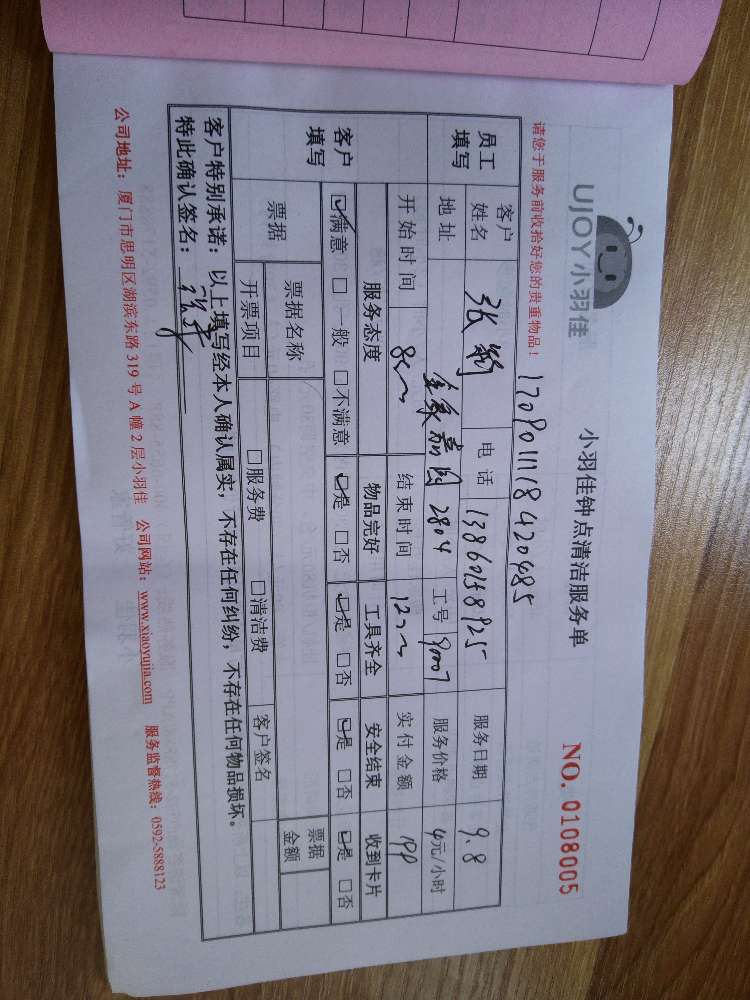 UJOY小羽佳
小羽佳钟点清洁服务单
NO. 0108005
请您于服务前收拾好您的贵重物品！
1709011118420485
员工填写 客户姓名 张 电话 13860158925 服务日期 9.8
地址 嘉园 2804 工号 90007 服务价格 元/小时
开始时间 8 结束时间 12 实付金额
客户填写 服务态度 物品完好 工具齐全 安全结束 收到卡片
☑满意 □一般 □不满意 ☑是 □否 ☑是 □否 ☑是 □否 ☑是 □否
票据 票据名称 票据金额
开票项目 □服务费 □清洁费 客户签名
客户特别承诺：以上填写经本人确认属实，不存在任何纠纷，不存在任何物品损坏。
特此确认签名：
公司地址：厦门市思明区湖滨东路 319 号 A 幢 2 层小羽佳 公司网站：www.xiaoyujia.com 服务监督热线：0592-5888123